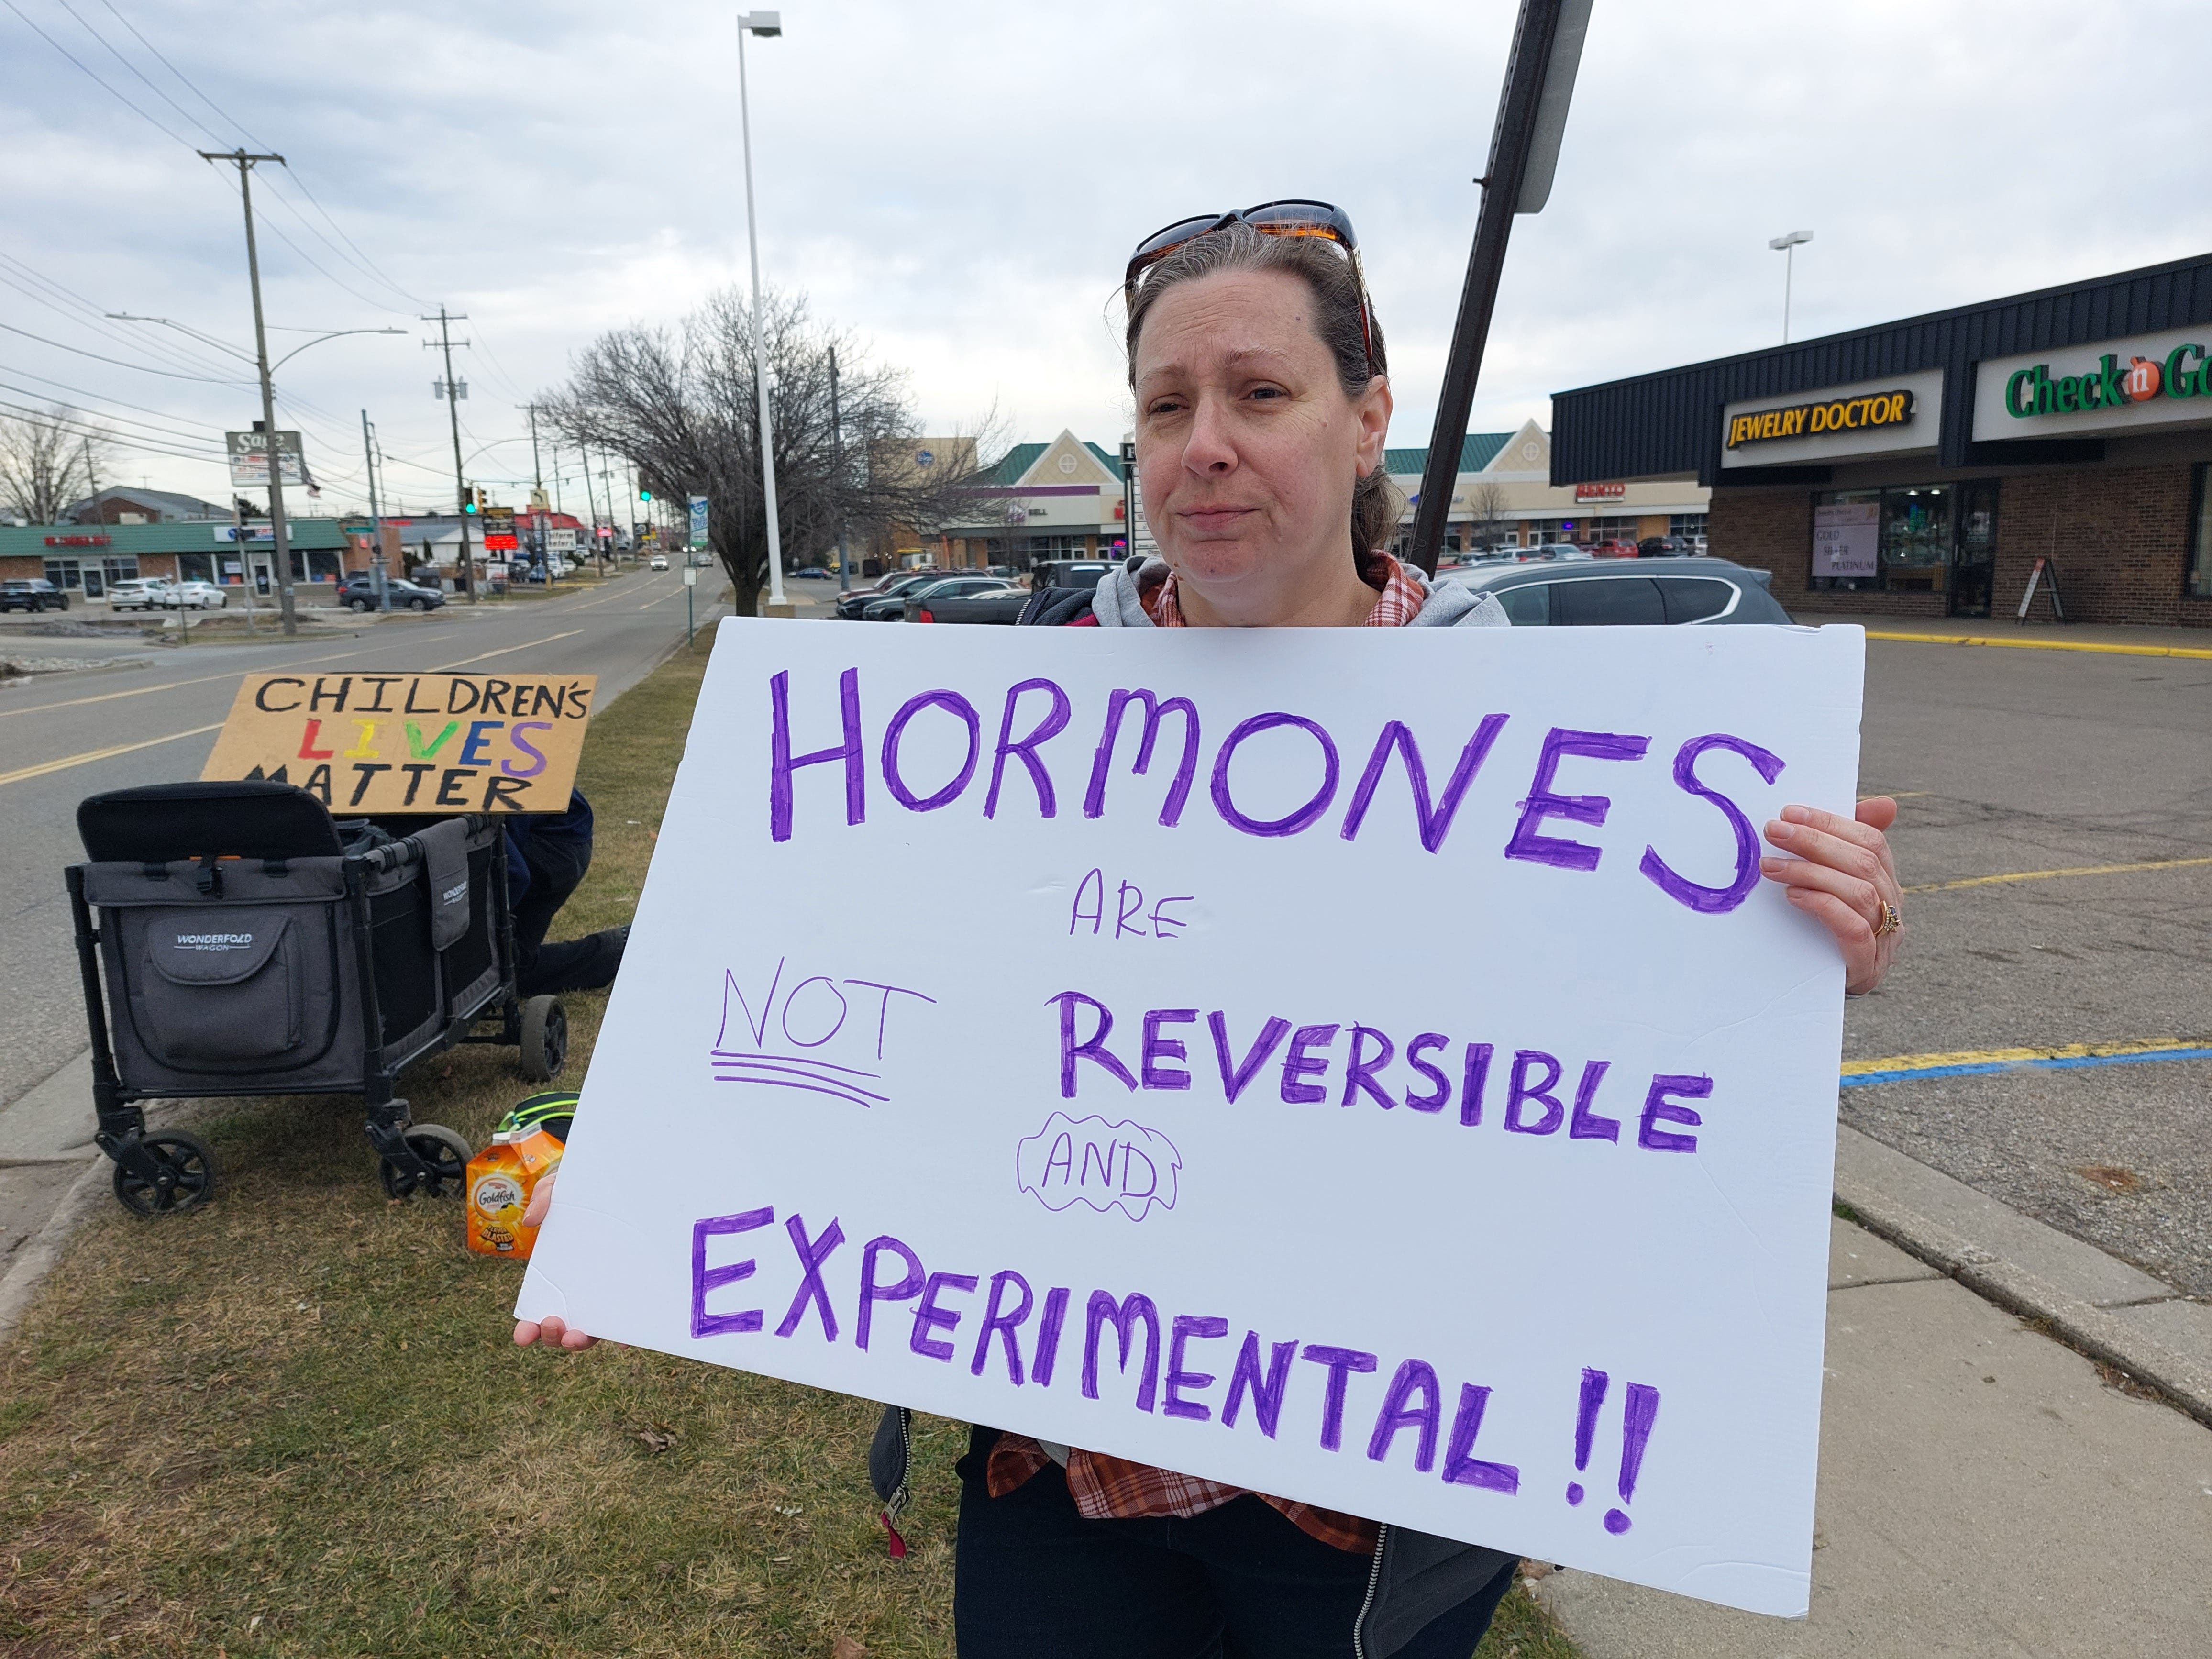 HORMONES
ARE
NOT REVERSIBLE
AND
EXPERIMENTAL!!
CHILDREN'S
LIVES
MATTER
WONDERFOLD
WAGON
WONDERFOLD
Goldfish
JEWELRY DOCTOR
Check 'n Go
GOLD
SILVER
PLATINUM
Sage